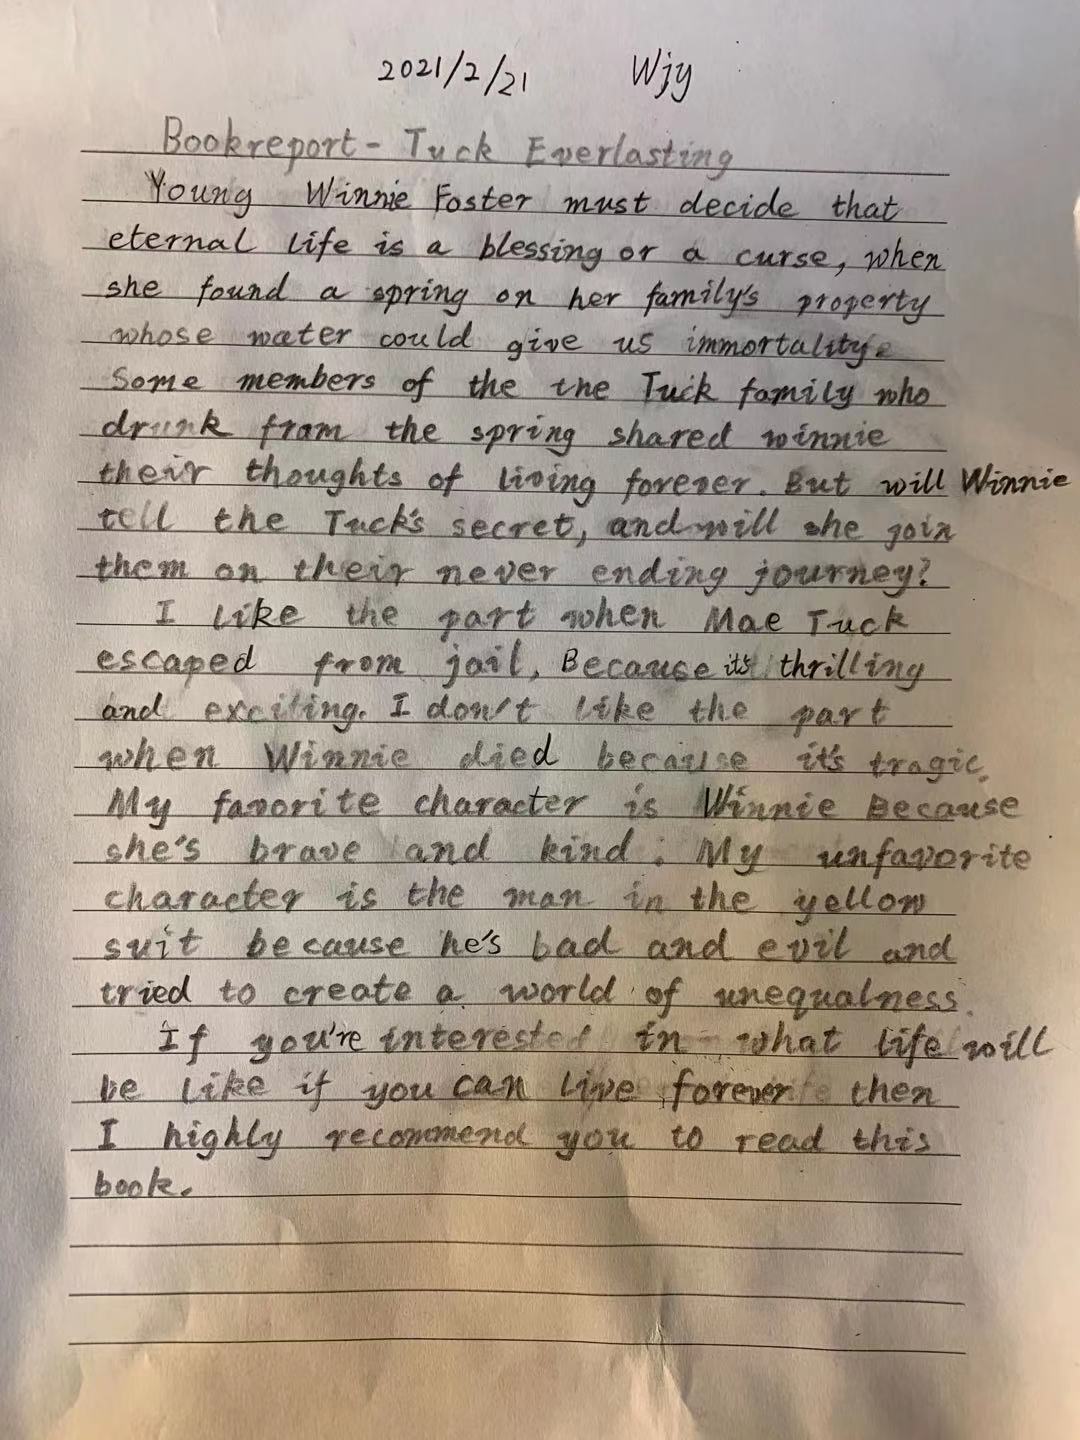 2021/2/21 Wjy
Bookreport - Tuck Everlasting
Young Winnie Foster must decide that
eternal life is a blessing or a curse, when
she found a spring on her family's property
whose water could give us immortality.
Some members of the the Tuck family who
drunk from the spring shared winnie
their thoughts of living forever. But will Winnie
tell the Tuck's secret, and will she join
them on their never ending journey?
I like the part when Mae Tuck
escaped from jail, Because it's thrilling
and exciting. I don't like the part
when Winnie died because it's tragic.
My favorite character is Winnie Because
she's brave and kind. My unfavorite
character is the man in the yellow
suit because he's bad and evil and
tried to create a world of unequalness.
If you're interested in what life will
be like if you can live forever then
I highly recommend you to read this
book.